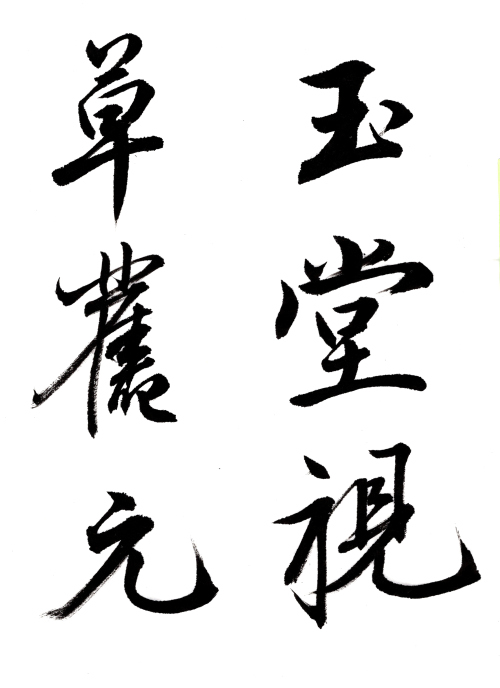 玉堂視
草舊元